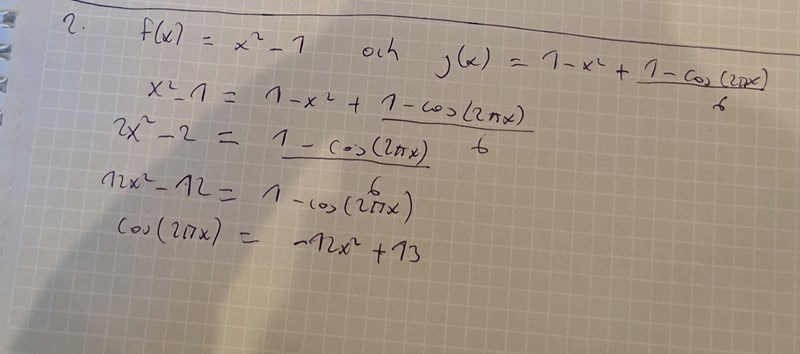 2. f(x) = x² - 1 och g(x) = 1 - x² + (1 - cos(2πx))/6
x² - 1 = 1 - x² + (1 - cos(2πx))/6
2x² - 2 = (1 - cos(2πx))/6
12x² - 12 = 1 - cos(2πx)
cos(2πx) = -12x² + 13